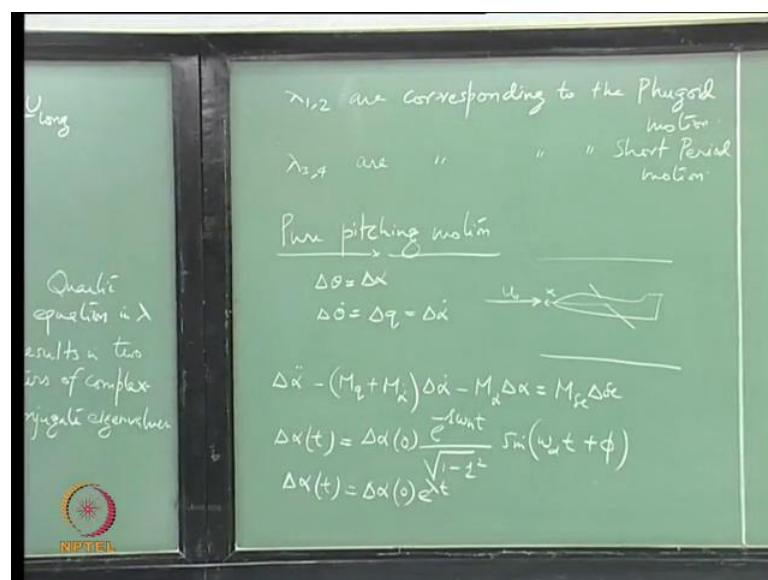 U long
Quartic
equation in λ
results in two
pairs of complex
conjugate eigenvalues
λ1,2 are corresponding to the Phugoid
motion.
λ3,4 are " " " Short Period
motion.
Pure pitching motion
Δθ = Δα
Δθ̇ = Δq = Δα̇
U₀
Δα̈ - (Mq + Mα̇)Δα̇ - MαΔα = MδeΔδe
Δα(t) = Δα(0) e^-ζωnt / √(1-ζ²) sin(ωαt + φ)
Δα(t) = Δα(0) e^λt
NPTEL